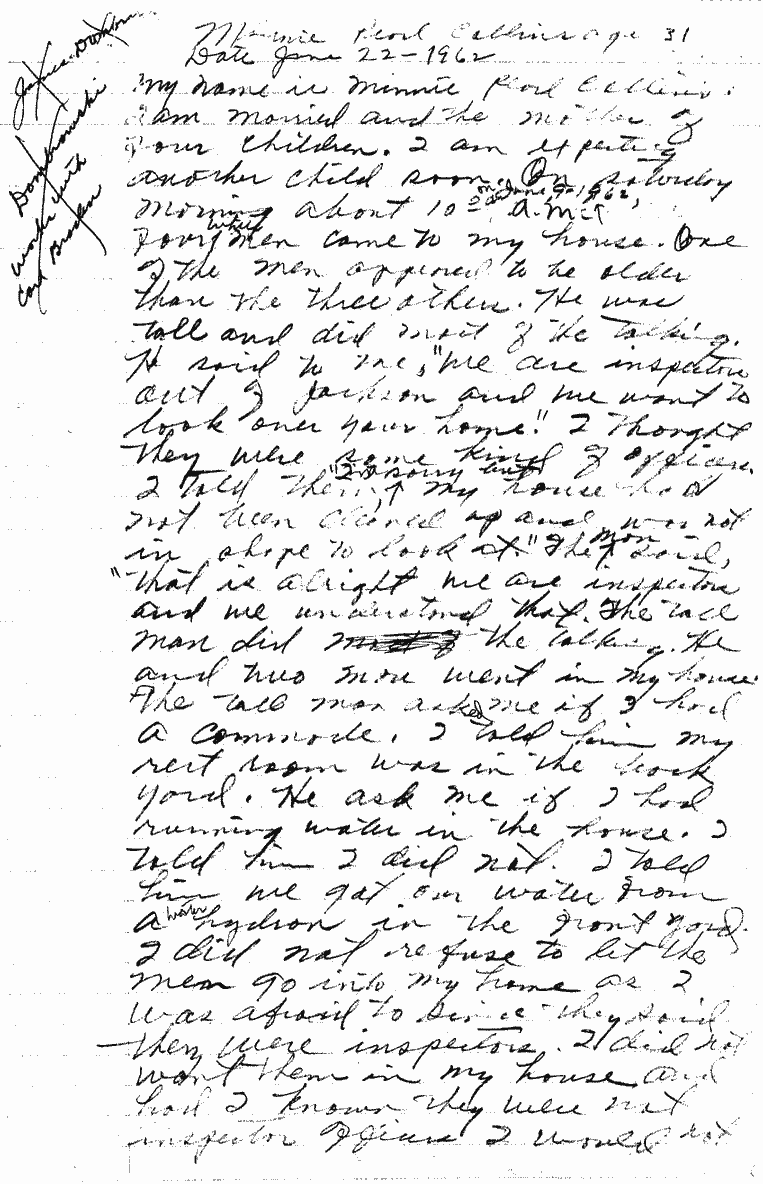 James Dombrow
Dombrowski
works with
Carl Braden
Minnie Pearl Collins age 31
Date June 22-1962
My name is Minnie Pearl Collins.
I am married and the mother of
four children. I am expecting
another child soon. On Saturday
morning about 10 00 A.M. on June 9, 1962,
four white men came to my house. One
of the men appeared to be older
than the three others. He was
tall and did most of the talking.
He said to me, "we are inspectors
out of Jackson and we want to
look over your home." I thought
they were some kind of officers.
I told them, "I'm sorry but my house had
not been cleaned up and was not
in shape to look at." The man said,
"that is alright we are inspectors
and we understand that. The tall
man did most of the talking. He
and two more went in my house.
The tall man asked me if I had
a commode. I told him my
rest room was in the back
yard. He ask me if I had
running water in the house. I
told him I did not. I told
him we got our water from
a water hydron in the front yard.
I did not refuse to let the
men go into my home as I
was afraid to since they said
they were inspectors. I did not
want them in my house and
had I known they were not
inspector officers I would not